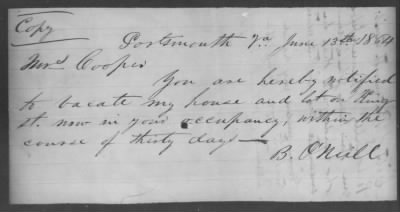 Copy
Portsmouth Va. June 13th 1864
Mrs Cooper
You are hereby notified
to vacate my house and lot on King
st. now in your occupancy, within the
course of thirty days—
B. O'Neill